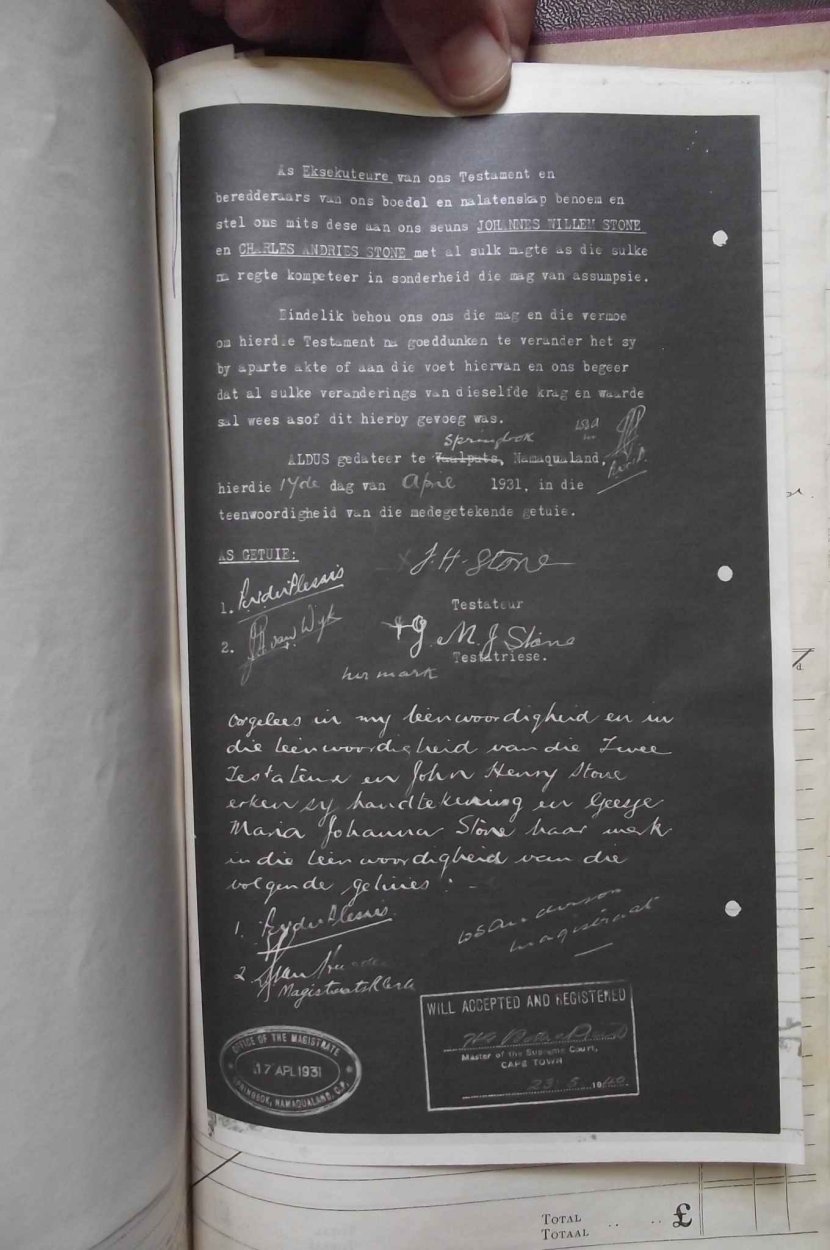 As Eksekuteure van ons Testament en
beredderaars van ons boedel en nalatenskap benoem en
stel ons mits dese aan ons seuns JOHANNES WILLEM STONE
en CHARLES ANDRIES STONE met al sulk magte as die sulke
na regte kompeteer in sonderheid die mag van assumpsie.
Eindelik behou ons ons die mag en die vermoe
om hierdie Testament na goeddunken te verander het sy
by aparte akte of aan die voet hiervan en ons begeer
dat al sulke veranderings van dieselfde krag en waarde
sal wees asof dit hierby gevoeg was.
Springbok
ALDUS gedateer te Vaalputs, Namaqualand,
hierdie 17de dag van April 1931, in die
teenwoordigheid van die medegetekende getuie.
AS GETUIE:
J. H. Stone
Testateur
1.
2. van Wyk
G. M. J Stone
Testatriese.
her mark
Oorgelees in my teenwoordigheid en in
die teenwoordigheid van die Twee
Testateurs en John Henry Stone
erken sy handtekening en Geesje
Maria Johanna Stone haar merk
in die teenwoordigheid van die
volgende getuies : -
1.
magistraat
2.
Magistraats Klerk
WILL ACCEPTED AND REGISTERED
Master of the Supreme Court,
CAPE TOWN
23.5.1940.
OFFICE OF THE MAGISTRATE
17 APL 1931
SPRINGBOK, NAMAQUALAND, C.P.
TOTAL .. .. £
TOTAAL